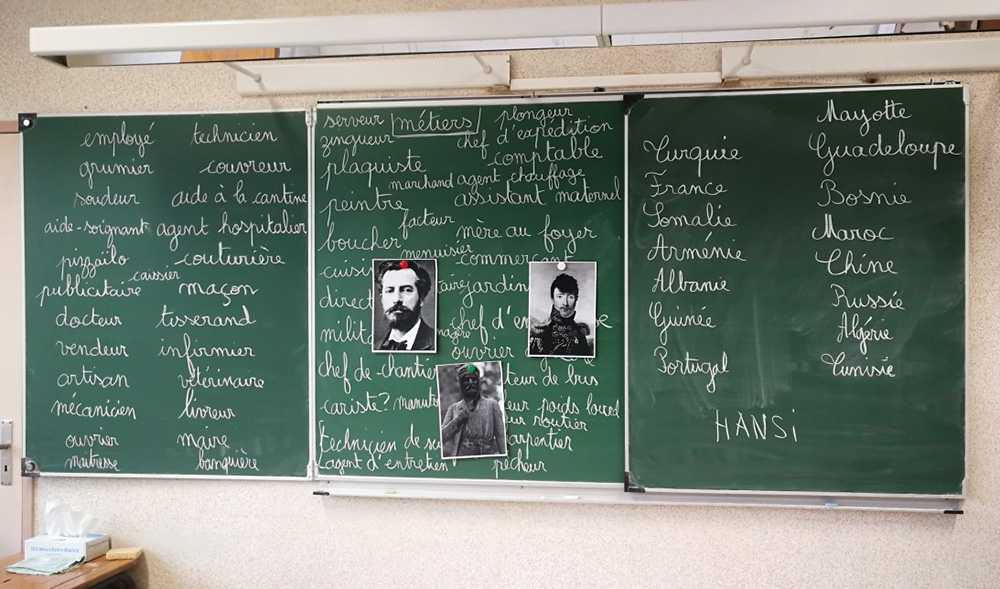 employé technicien
grumier couvreur
soudeur aide à la cantine
aide-soignant agent hospitalier
pizzaïlo couturière
caissier
publicitaire maçon
docteur tisserand
vendeur infirmier
artisan vétérinaire
mécanicien livreur
ouvrier maire
maitresse banquière
serveur métiers plongeur
zingueur chef d'expédition
plaquiste comptable
marchand agent chauffage
peintre assistant maternel
facteur
boucher mère au foyer
menuisier commerçant
cuisi
jardin
direct
milit chef d'en
ouvrier
chef de chantier teur de bus
cariste? manut eur poids lourd
eur routier
technicien de su arpentier
agent d'entretien pêcheur
Mayotte
Turquie Guadeloupe
France Bosnie
Somalie Maroc
Arménie Chine
Albanie Russie
Guinée Algérie
Portugal Tunisie
HANSi